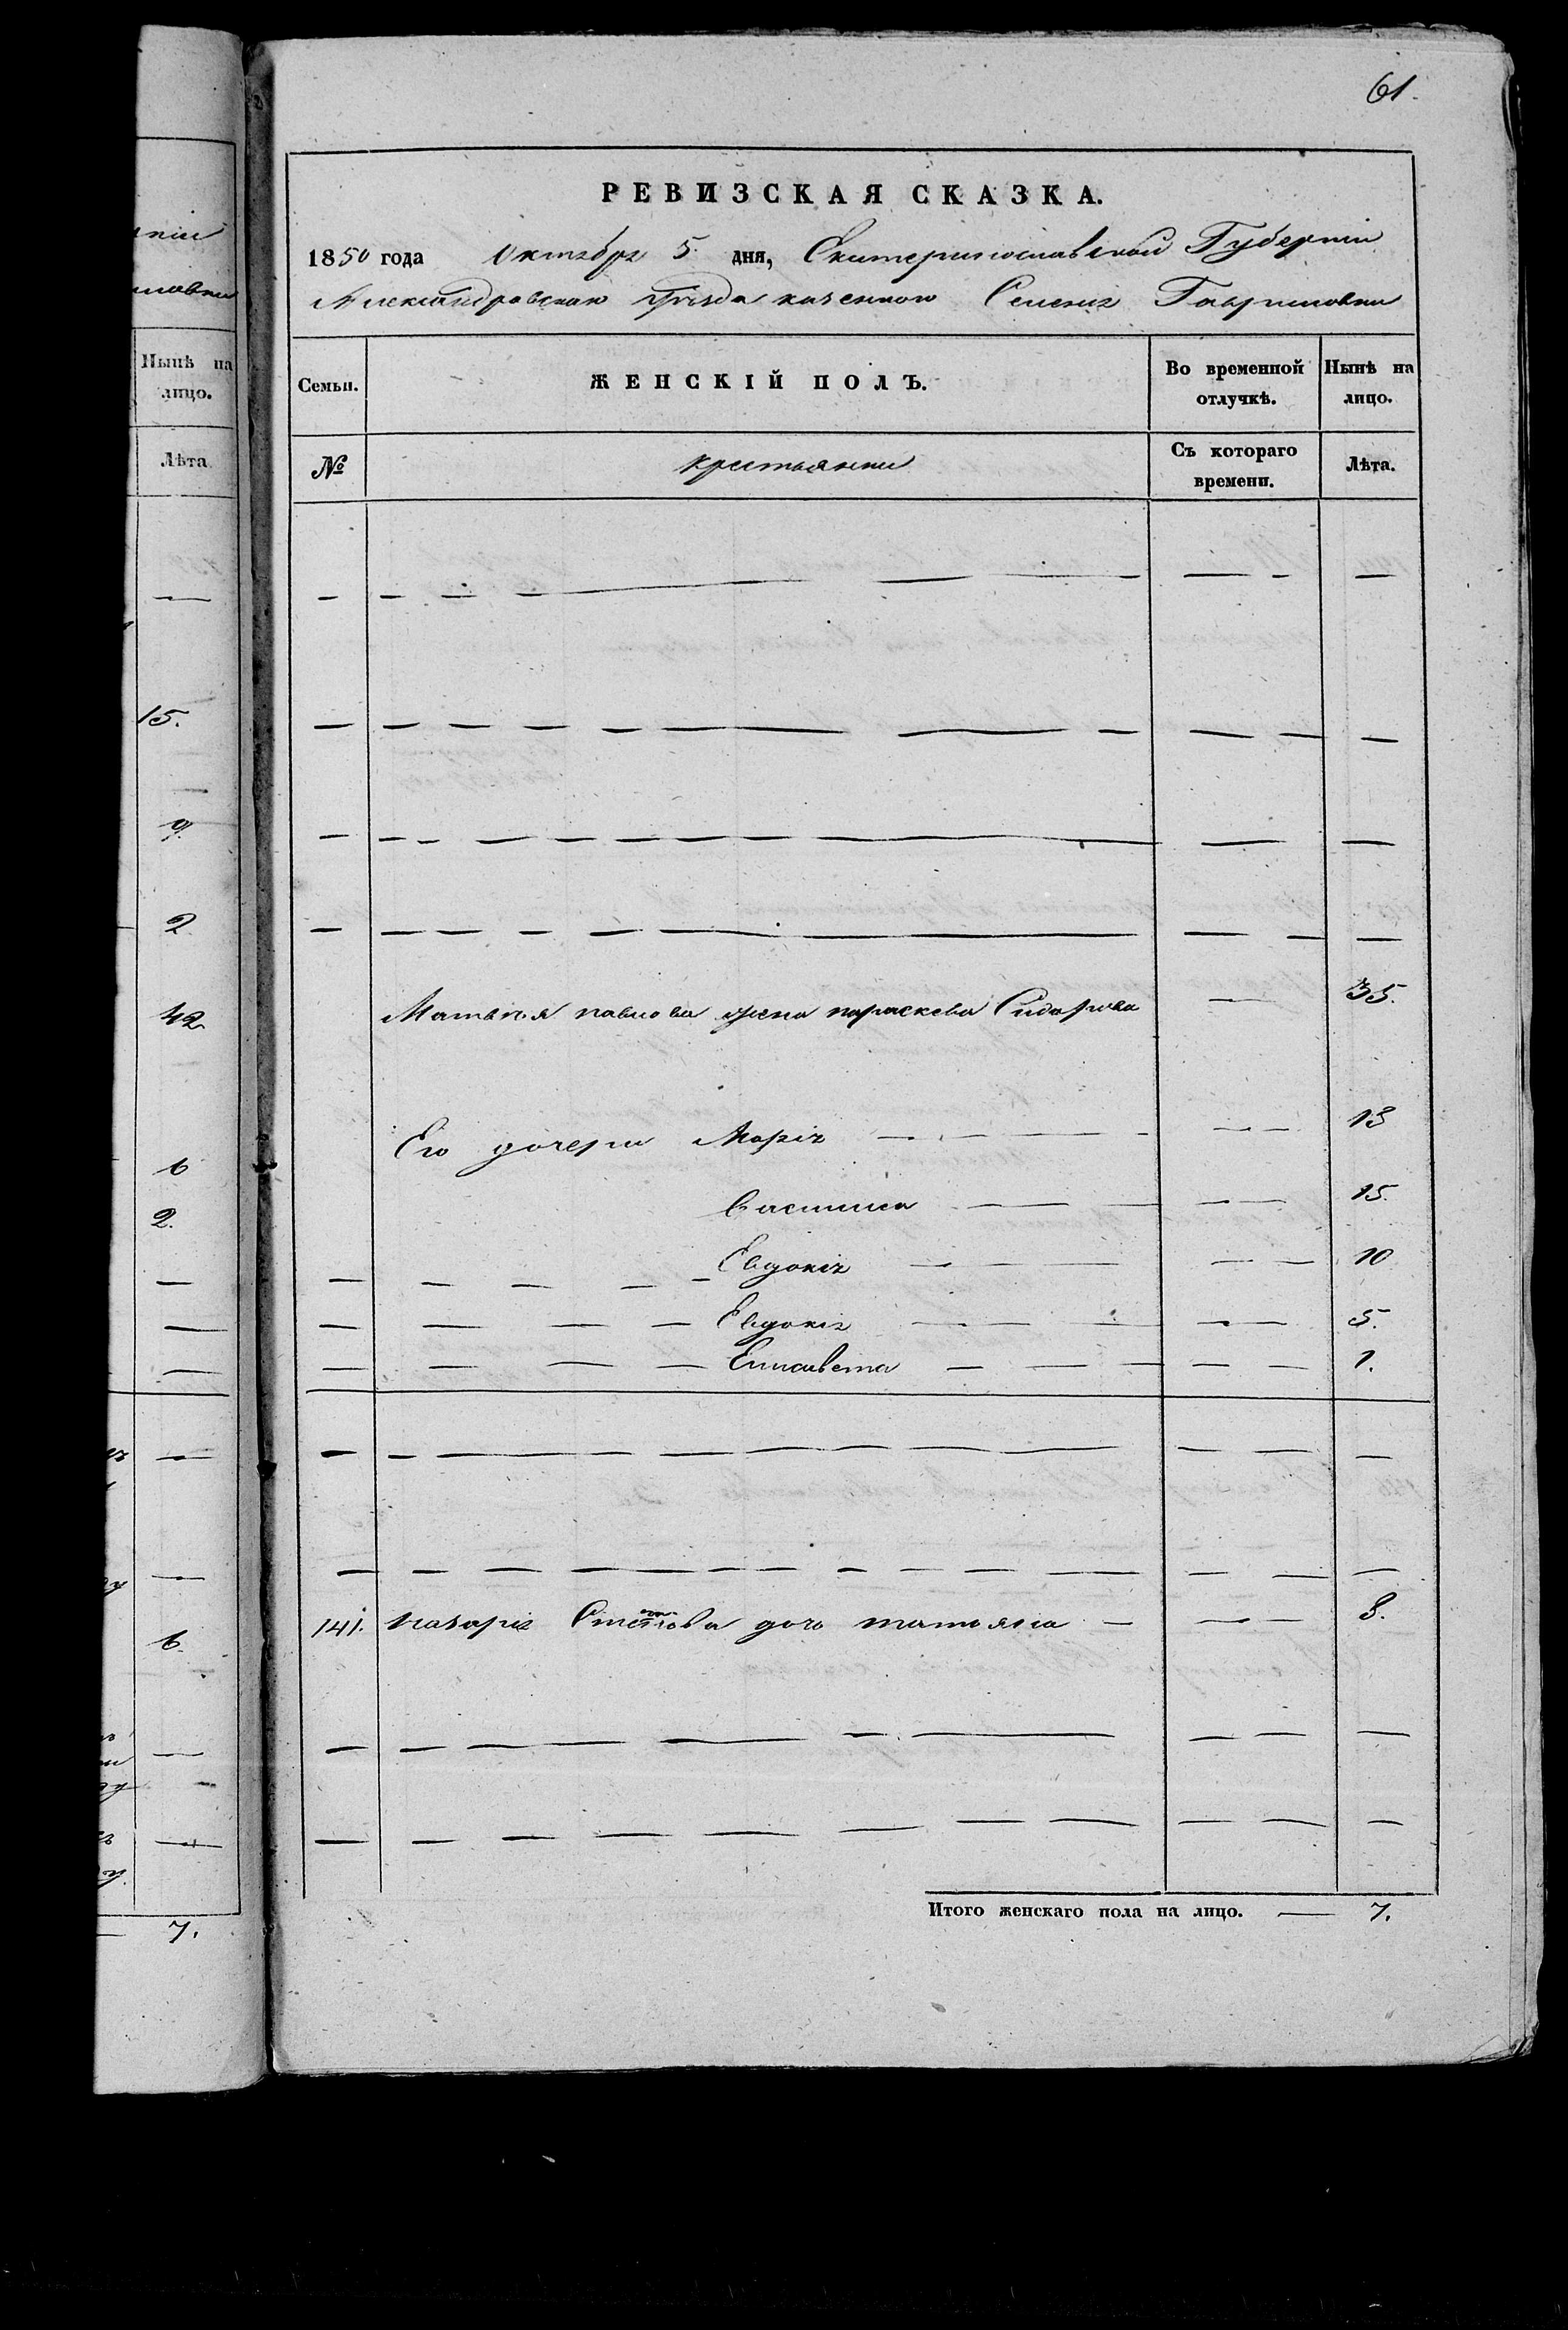 нiи
ловки
Нынѣ на
лицо.
Лѣта
15.
9.
2
42
6
2.
6.
7.
61.
РЕВИЗСКАЯ СКАЗКА.
1850 года Октября 5. дня, Екатеринославской Губернiи
Александровскаго Уѣзда казенного Селенiя Гавриловки
Семьи. ЖЕНСКIЙ ПОЛЪ. Во временной отлучкѣ. Нынѣ на лицо.
№ крестьянки Съ котораго времени. Лѣта.
Матвѣя павлова жена параскева Сидорова — 35.
Его дочери Марiя — 13
Василиса — 15.
Евдокiя — 10
Евдокiя — 5.
Елисавета — 1.
141. назарiя дочь татьяна — 8.
Итого женскаго пола на лицо. — 7.